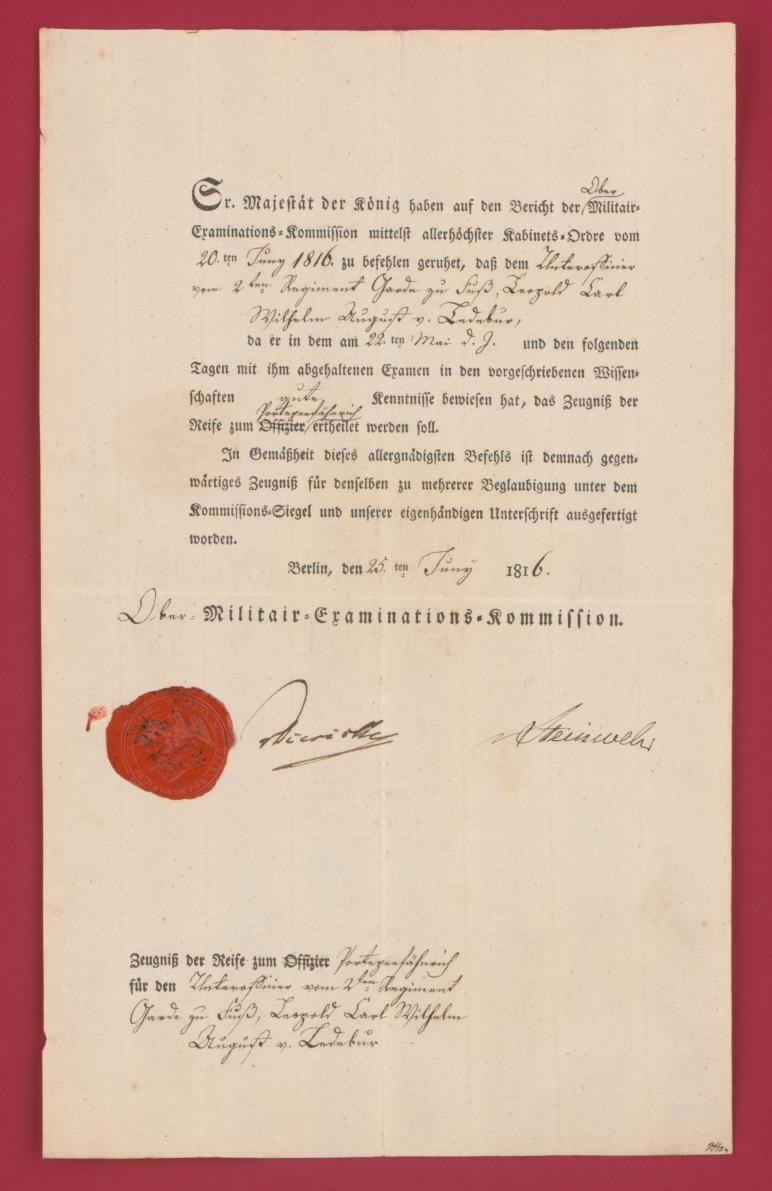 Ober
Sr. Majestät der König haben auf den Bericht der Militair-
Examinations-Kommission mittelst allerhöchster Kabinets-Ordre vom
20.ten Juny 1816. zu befehlen geruhet, daß dem Unterofficier
vom 2ten Regiment Garde zu Fuß, Leopold Carl
Wilhelm August v. Ledebur,
da er in dem am 22.ten Mai d. J. und den folgenden
Tagen mit ihm abgehaltenen Examen in den vorgeschriebenen Wissen-
schaften gute Kenntnisse bewiesen hat, das Zeugniß der
Portepeefähnrich
Reife zum Offizier ertheilet werden soll.
In Gemäßheit dieses allergnädigsten Befehls ist demnach gegen-
wärtiges Zeugniß für denselben zu mehrerer Beglaubigung unter dem
Kommissions-Siegel und unserer eigenhändigen Unterschrift ausgefertigt
worden.
Berlin, den 25.ten Juny 1816.
Ober-Militair-Examinations-Kommission.
Steinwehr
Zeugniß der Reife zum Offizier Portepeefähnrich
für den Unterofficier vom 2ten Regiment
Garde zu Fuß, Leopold Carl Wilhelm
August v. Ledebur